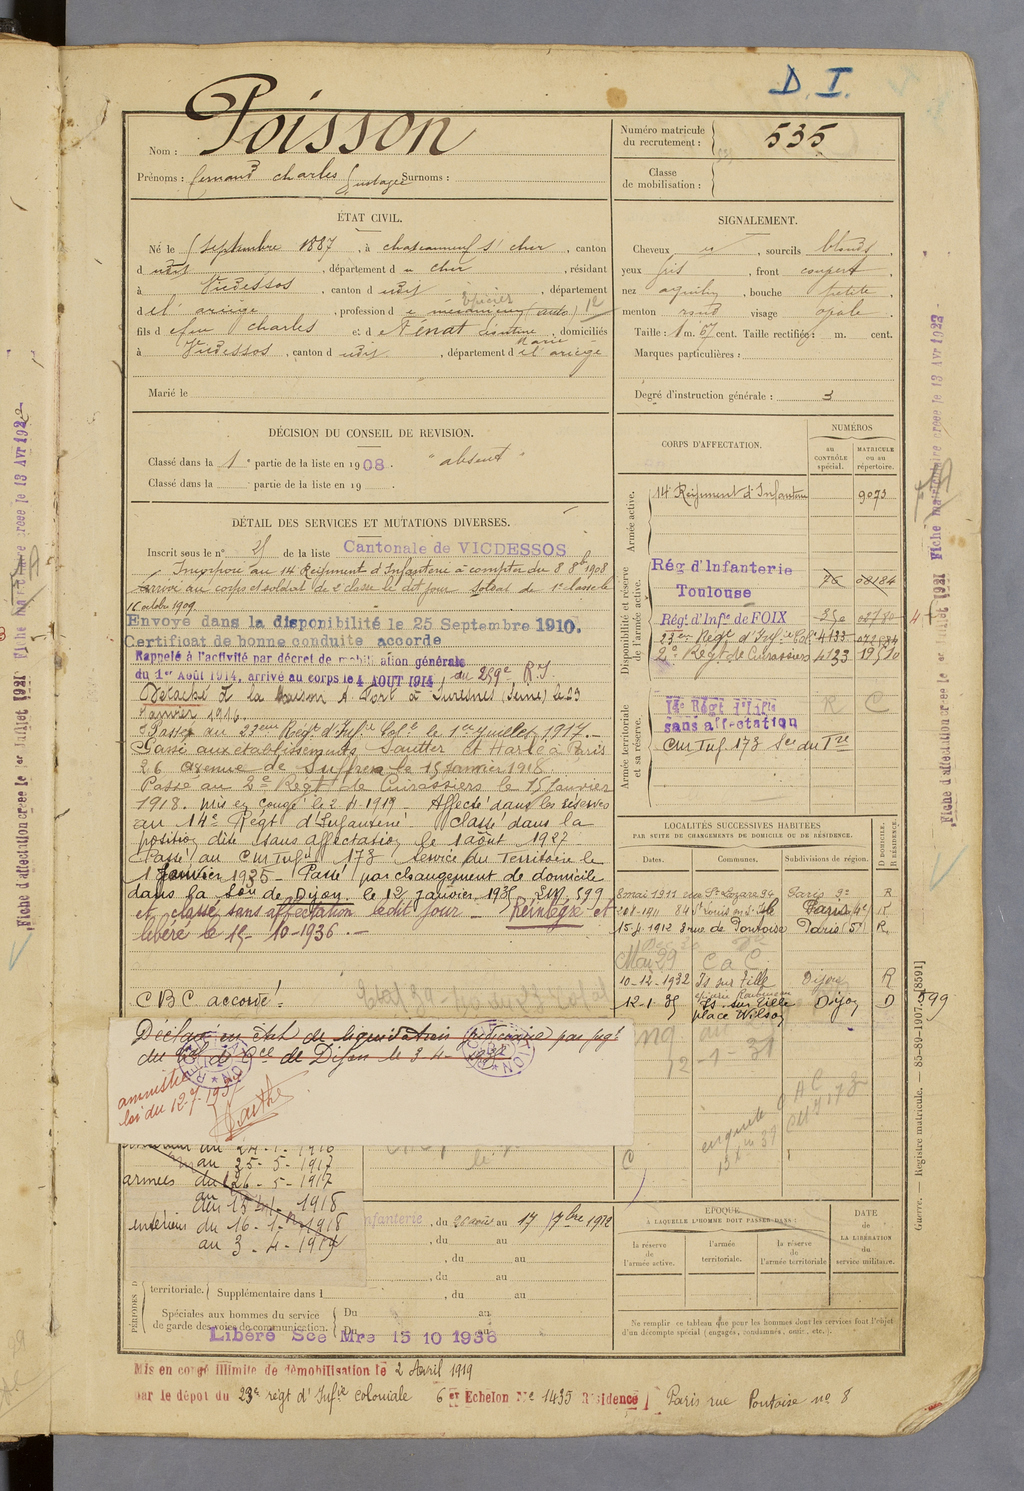 D. I.
Nom : Poisson
Prénoms : fernand charles Gustave Surnoms :
Numéro matricule du recrutement : 535
Classe de mobilisation :
ÉTAT CIVIL.
Né le 5 septembre 1887, à chateauneuf s/ cher, canton
d udit, département d u cher, résidant
à Vicdessos, canton d udit, département
d e l' ariège, profession d e mécanicien (auto) épicier 12
fils d e feu charles et d e Fénat Marie, domiciliés
à Vicdessos, canton d udit, département d e l' ariège
Marié le
SIGNALEMENT.
Cheveux, sourcils blonds,
yeux gris, front couvert,
nez aquilin, bouche petite,
menton rond visage ovale.
Taille : 1 m. 67 cent. Taille rectifiée : m. cent.
Marques particulières :
Degré d'instruction générale : 3
DÉCISION DU CONSEIL DE REVISION.
Classé dans la 1e partie de la liste en 1908. "absent"
Classé dans la partie de la liste en 19 .
DÉTAIL DES SERVICES ET MUTATIONS DIVERSES.
Inscrit sous le n° 25 de la liste Cantonale de VICDESSOS
Incorporé au 14 Régiment d'Infanterie à compter du 8 8bre 1908
Arrivé au corps et soldat de 2e classe le dit jour. Soldat de 1e classe le
16 octobre 1909.
Envoyé dans la disponibilité le 25 Septembre 1910.
Certificat de bonne conduite accordé
Rappelé à l'activité par décret de mobilisation générale
du 1er Août 1914, arrivé au corps le 4 AOUT 1914, du 259e R.I
Détaché à la maison A. Port à Suresnes (Seine) le 23
Janvier 1916.
Passé au 23eme Régt d'Infie Cole le 1er juillet 1917.
Passé aux établissements Sautter et Harlé à Paris
26 avenue de Suffren le 15 Janvier 1918
Passé au 2e Régt de Cuirassiers le 15 Janvier
1918. mis en congé le 2.4.1919 - Affecté dans les réserves
au 14e Régt d'Infanterie. Classé dans la
position dite sans affectation le 1 août 1927
Passé au CM Inf 173 Service du Territoire le
1 Janvier 1935 - Passé par changement de domicile
dans la son de Dijon le 12 janvier 1935 LM 599
et classé sans affectation ledit jour - Réintégré et
libéré le 15-10-1936. -
CBC accordé.
CORPS D'AFFECTATION.
NUMÉROS
au CONTRÔLE spécial.
MATRICULE ou au répertoire.
Armée active.
14 Régiment d'Infanterie 9073
Disponibilité et réserve de l'armée active.
Rég d'Infanterie
Toulouse 08184
Régt d'Infie de FOIX 350 02780
23e Régt d'Infie Cole 4133
2e Régt de Cuirassiers 4133 19510
Armée territoriale et sa réserve.
14e Régt d'Infie R C
sans affectation
CM Inf 173 Sce du Tre
LOCALITÉS SUCCESSIVES HABITÉES
PAR SUITE DE CHANGEMENTS DE DOMICILE OU DE RÉSIDENCE.
Dates. Communes. Subdivisions de région. D DOMICILE. R RÉSIDENCE.
8 mai 1911 rue St Lazare 94 Paris 9e R
20-1-1911 84 St Louis en l'Ile Paris (4e) R
15-4-1912 8 rue de Pontoise Paris (5e) R.
10-12-1932 Is sur Tille Dijon R
12-1-35 Is sur Tille Dijon D 599
place Wilson
12-1-31
Déclaré en état de liquidation judiciaire par jugt
du Tal de Cce de Dijon le 3 4 1932
amnistié
loi du 12-7-1937
au 24-1-1916
au 25-5-1917
armées du 26-5-1917
au 15-1-1918
intérieur du 16-1-1918
au 3-4-1919
nfanterie, du 26 août au 17 7bre 1912
, du au
, du au
, du au
PÉRIODES D
territoriale. Supplémentaire dans l , du au
Spéciales aux hommes du service
de garde des voies de communication.
Du au
Du au
Libéré Sce Mre 15 10 1936
ÉPOQUE
À LAQUELLE L'HOMME DOIT PASSER DANS :
la réserve de l'armée active.
l'armée territoriale.
la réserve de l'armée territoriale
DATE de LA LIBÉRATION du service militaire.
Ne remplir ce tableau que pour les hommes dont les services font l'objet
d'un décompte spécial (engagés, condamnés, omis, etc.).
Mis en congé illimité de démobilisation le 2 Avril 1919
par le dépôt du 23e régt d'Infie coloniale 6 er Echelon No 1435 Résidence Paris rue Pontoise no 8
Guerre. — Registre matricule. — 85-89-1907. [8591]
Fiche d'affectation créée le 1er Juillet 1921 Fiche matriculaire créée le 13 Avr 1922
Fiche d'affectation créée le 1er Juillet 1921 Fiche matriculaire créée le 13 Avr 1922